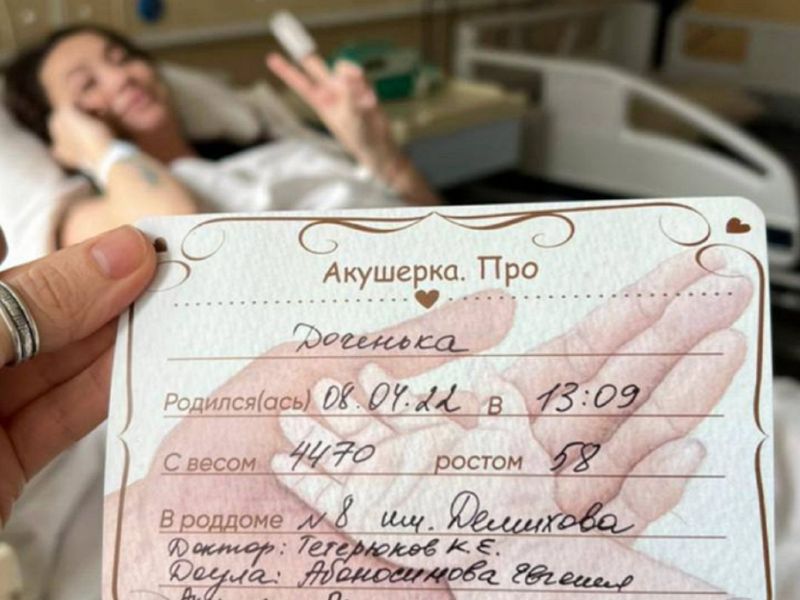 Акушерка. Про
Доченька
Родился(ась) 08.04.22 в 13:09
С весом 4470 ростом 58
В роддоме №8 им. Демихова
Доктор: Тетерюков К.Е.
Доула: Абоносимова Евгения